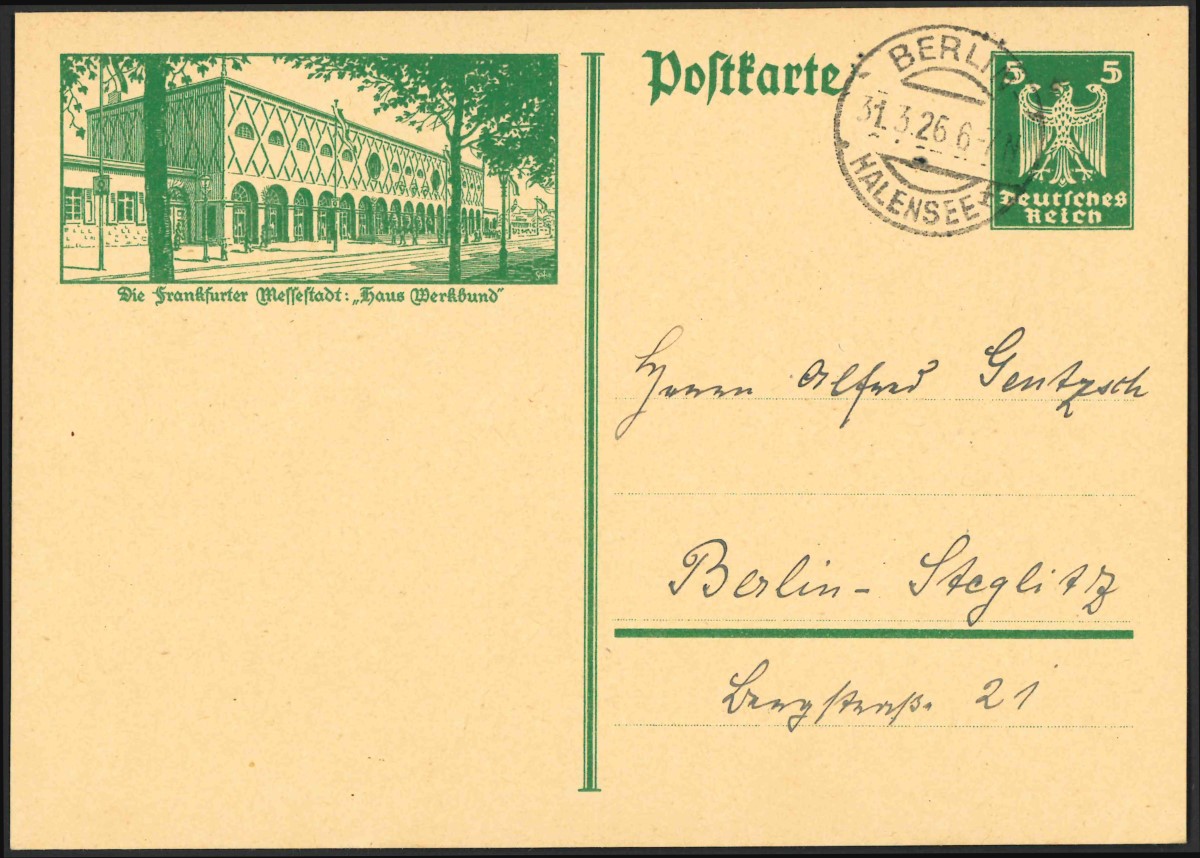 Die Frankfurter Messestadt: „Haus Werkbund"
Postkarte
BERLIN
31.3.26 6-7N
HALENSEE
5 5
Deutsches
Reich
Herrn Alfred Gentzsch
Berlin-Steglitz
Bergstraße 21